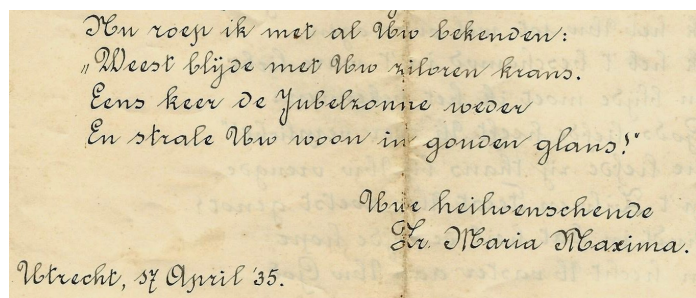 Nu roep ik met al Uw bekenden:
„Weest blijde met Uw zilvren krans.
Eens keer de Jubelzonne weder
En strale Uw woon in gouden glans!"
Uwe heilwenschende
Zr. Maria Maxima.
Utrecht, 17 April '35.